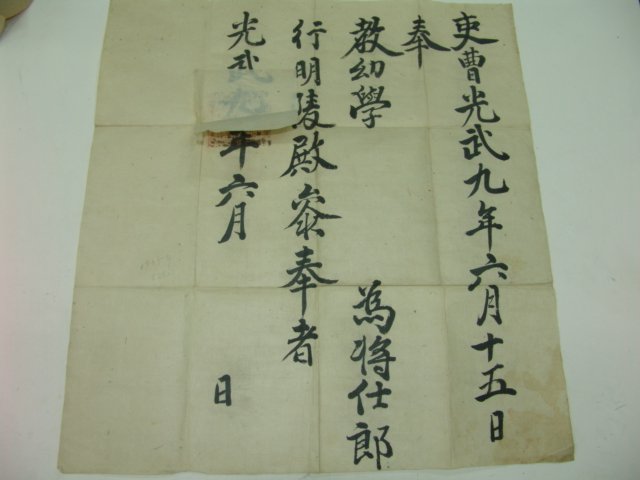 吏曹光武九年六月十五日
奉
教幼學 為將仕郎
行明陵殿叅奉者
光武 年六月 日